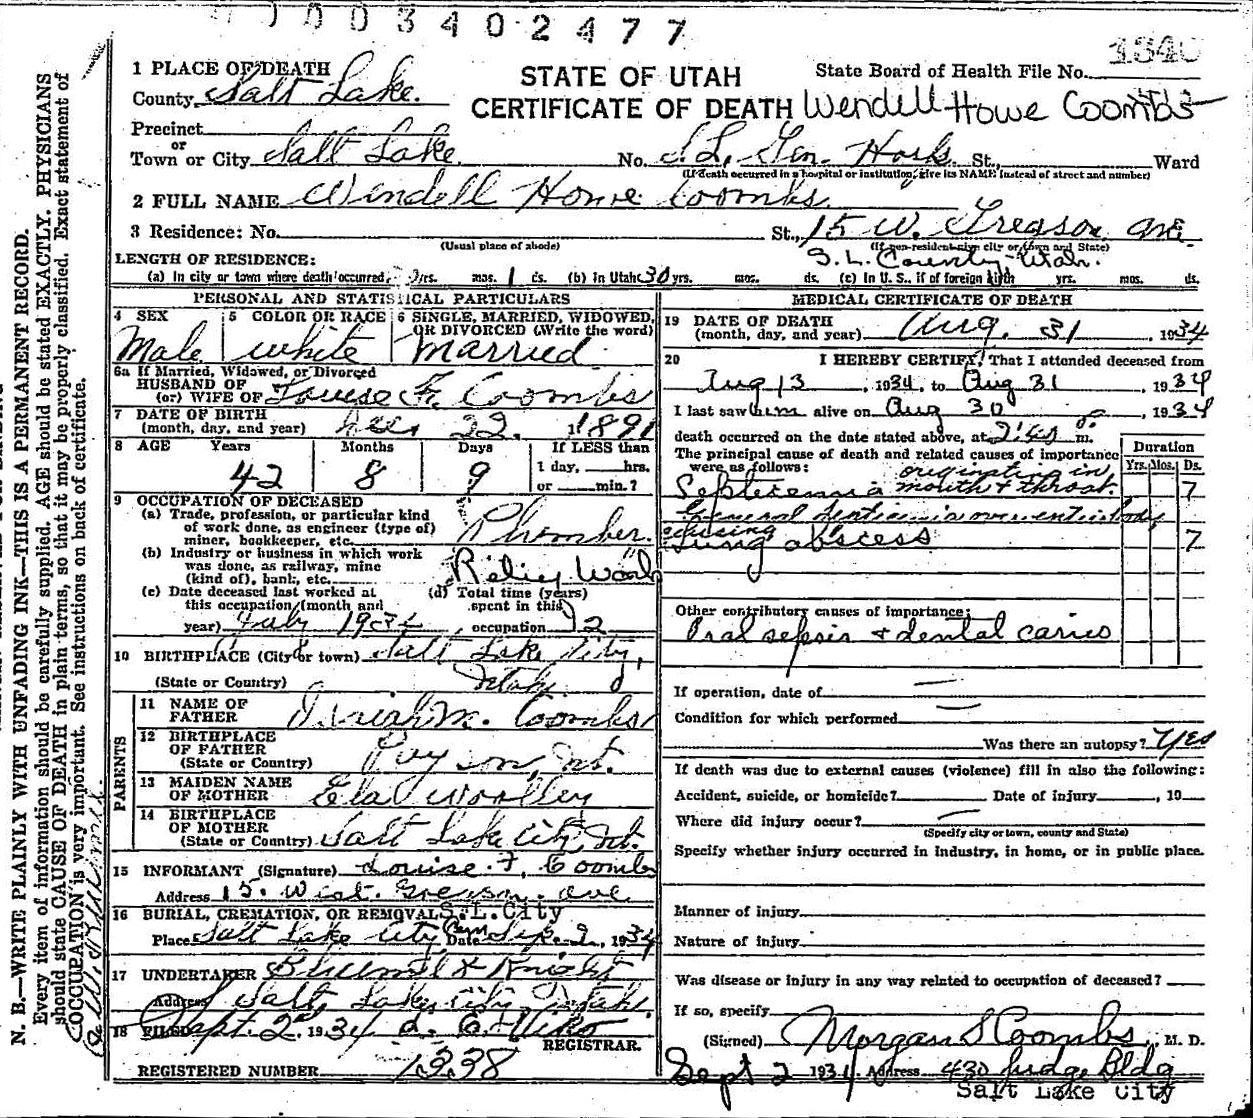 0003402477
1340
1 PLACE OF DEATH
County Salt Lake.
Precinct
or
Town or City Salt Lake
STATE OF UTAH
CERTIFICATE OF DEATH
State Board of Health File No.
Wendell Howe Coombs
No. S. L. Gen. Hosp. St., Ward
(If death occurred in a hospital or institution, give its NAME instead of street and number)
2 FULL NAME Wendell Howe Coombs.
3 Residence: No. St., 15 W. Gregson Ave.
(Usual place of abode)
(If non-resident give city or town and State)
S. L. County-Utah.
LENGTH OF RESIDENCE:
(a) In city or town where death occurred, yrs. mos. 1 ds. (b) in Utah 30 yrs. mos. ds. (c) in U. S., if of foreign birth yrs. mos. ds.
PERSONAL AND STATISTICAL PARTICULARS
4 SEX
Male
5 COLOR OR RACE
white
6 SINGLE, MARRIED, WIDOWED,
OR DIVORCED (Write the word)
Married
6a If Married, Widowed, or Divorced
HUSBAND OF
(or) WIFE OF Louise F. Coombs
7 DATE OF BIRTH
(month, day, and year) Dec 22. 1891
8 AGE Years Months Days If LESS than
42 8 9 1 day, hrs.
or min.?
9 OCCUPATION OF DECEASED
(a) Trade, profession, or particular kind
of work done, as engineer (type of)
miner, bookkeeper, etc. Plumber.
(b) Industry or business in which work
was done, as railway, mine
(kind of), bank, etc. Relief Work
(c) Date deceased last worked at
this occupation (month and
year) July 1934
(d) Total time (years)
spent in this
occupation 12
10 BIRTHPLACE (City or town) Salt Lake City,
(State or Country) Utah
PARENTS
11 NAME OF
FATHER Isaiah M. Coombs
12 BIRTHPLACE
OF FATHER
(State or Country) Payson, Ut.
13 MAIDEN NAME
OF MOTHER Ela Woolley
14 BIRTHPLACE
OF MOTHER
(State or Country) Salt Lake City, Ut.
15 INFORMANT (Signature) Louise F. Coombs
Address 15. West. Gregson. Ave
16 BURIAL, CREMATION, OR REMOVAL S.L.City
Place Salt Lake City Cem Date Sep. 2, 1934
17 UNDERTAKER & Knight
Address Salt Lake City, Utah.
18 FILED Sept. 2nd 1934
REGISTRAR.
REGISTERED NUMBER 1338
MEDICAL CERTIFICATE OF DEATH
19 DATE OF DEATH
(month, day, and year) Aug. 31 1934
20 I HEREBY CERTIFY, That I attended deceased from
Aug 13, 1934, to Aug 31, 1934
I last saw him alive on Aug 30, 1934
death occurred on the date stated above, at 2:40 m.
The principal cause of death and related causes of importance
were as follows:
Duration
Yrs. Mos. Ds.
originating in
Septicemia mouth & throat. 7
General septicemia over entire body
causing
lung abscess 7
Other contributory causes of importance:
Oral sepsis & dental caries
If operation, date of
Condition for which performed
Was there an autopsy? Yes
If death was due to external causes (violence) fill in also the following:
Accident, suicide, or homicide? Date of injury , 19
Where did injury occur?
(Specify city or town, county and State)
Specify whether injury occurred in industry, in home, or in public place.
Manner of injury
Nature of injury
Was disease or injury in any way related to occupation of deceased?
If so, specify
(Signed) Morgan S Coombs, M. D.
Sept 2 1934 Address 430 Judge Bldg
Salt Lake City
N. B.—WRITE PLAINLY WITH UNFADING INK—THIS IS A PERMANENT RECORD.
Every item of information should be carefully supplied. AGE should be stated EXACTLY. PHYSICIANS
should state CAUSE OF DEATH in plain terms, so that it may be properly classified. Exact statement of
OCCUPATION is very important. See instructions on back of certificate.